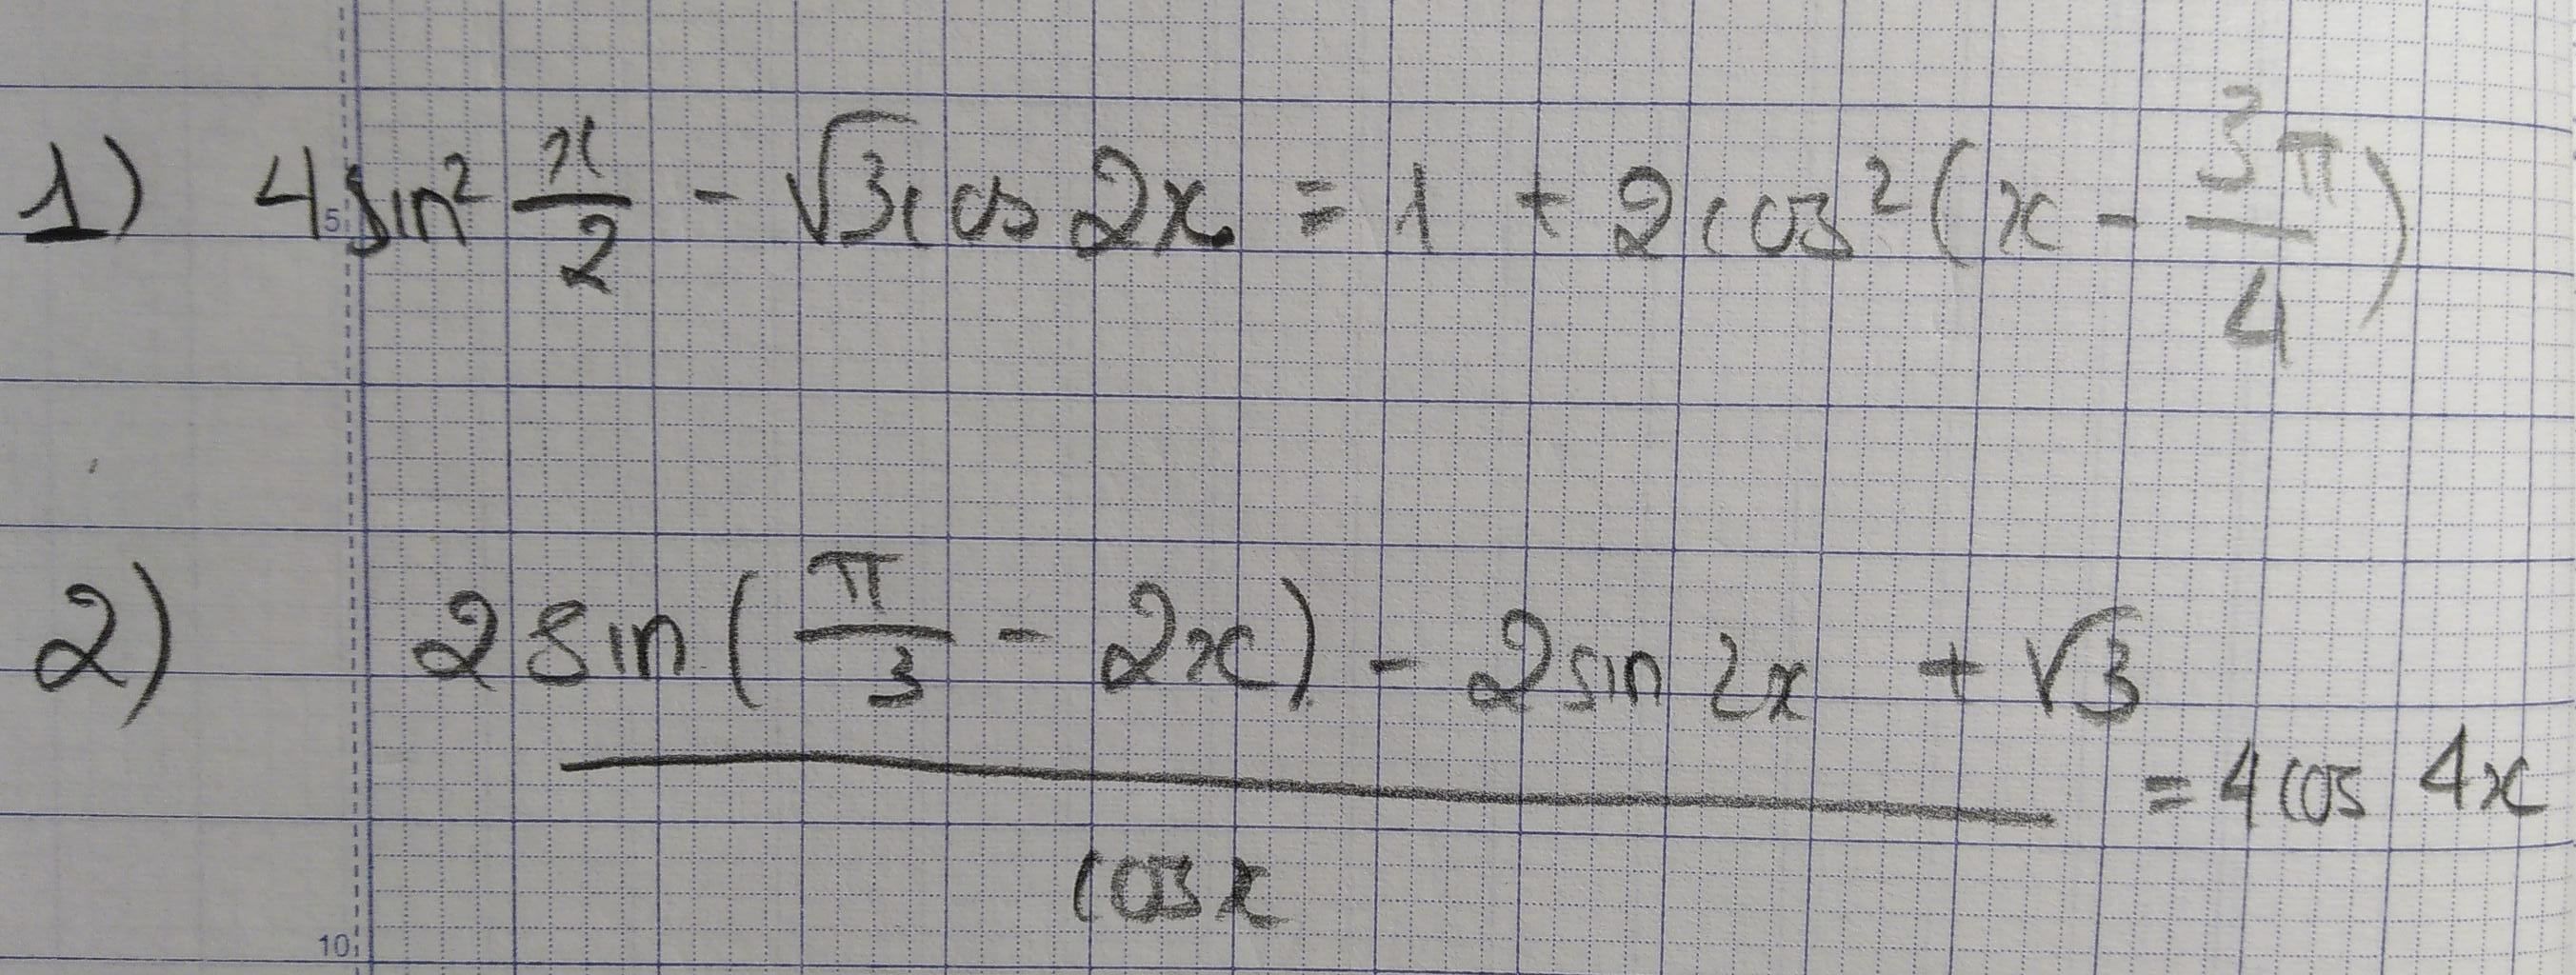 1) 4sin² x/2 - √3cos 2x = 1 + 2cos²(x - 3π/4)
2) (2sin(π/3 - 2x) - 2sin2x + √3)/cosx = 4cos 4x
5
10